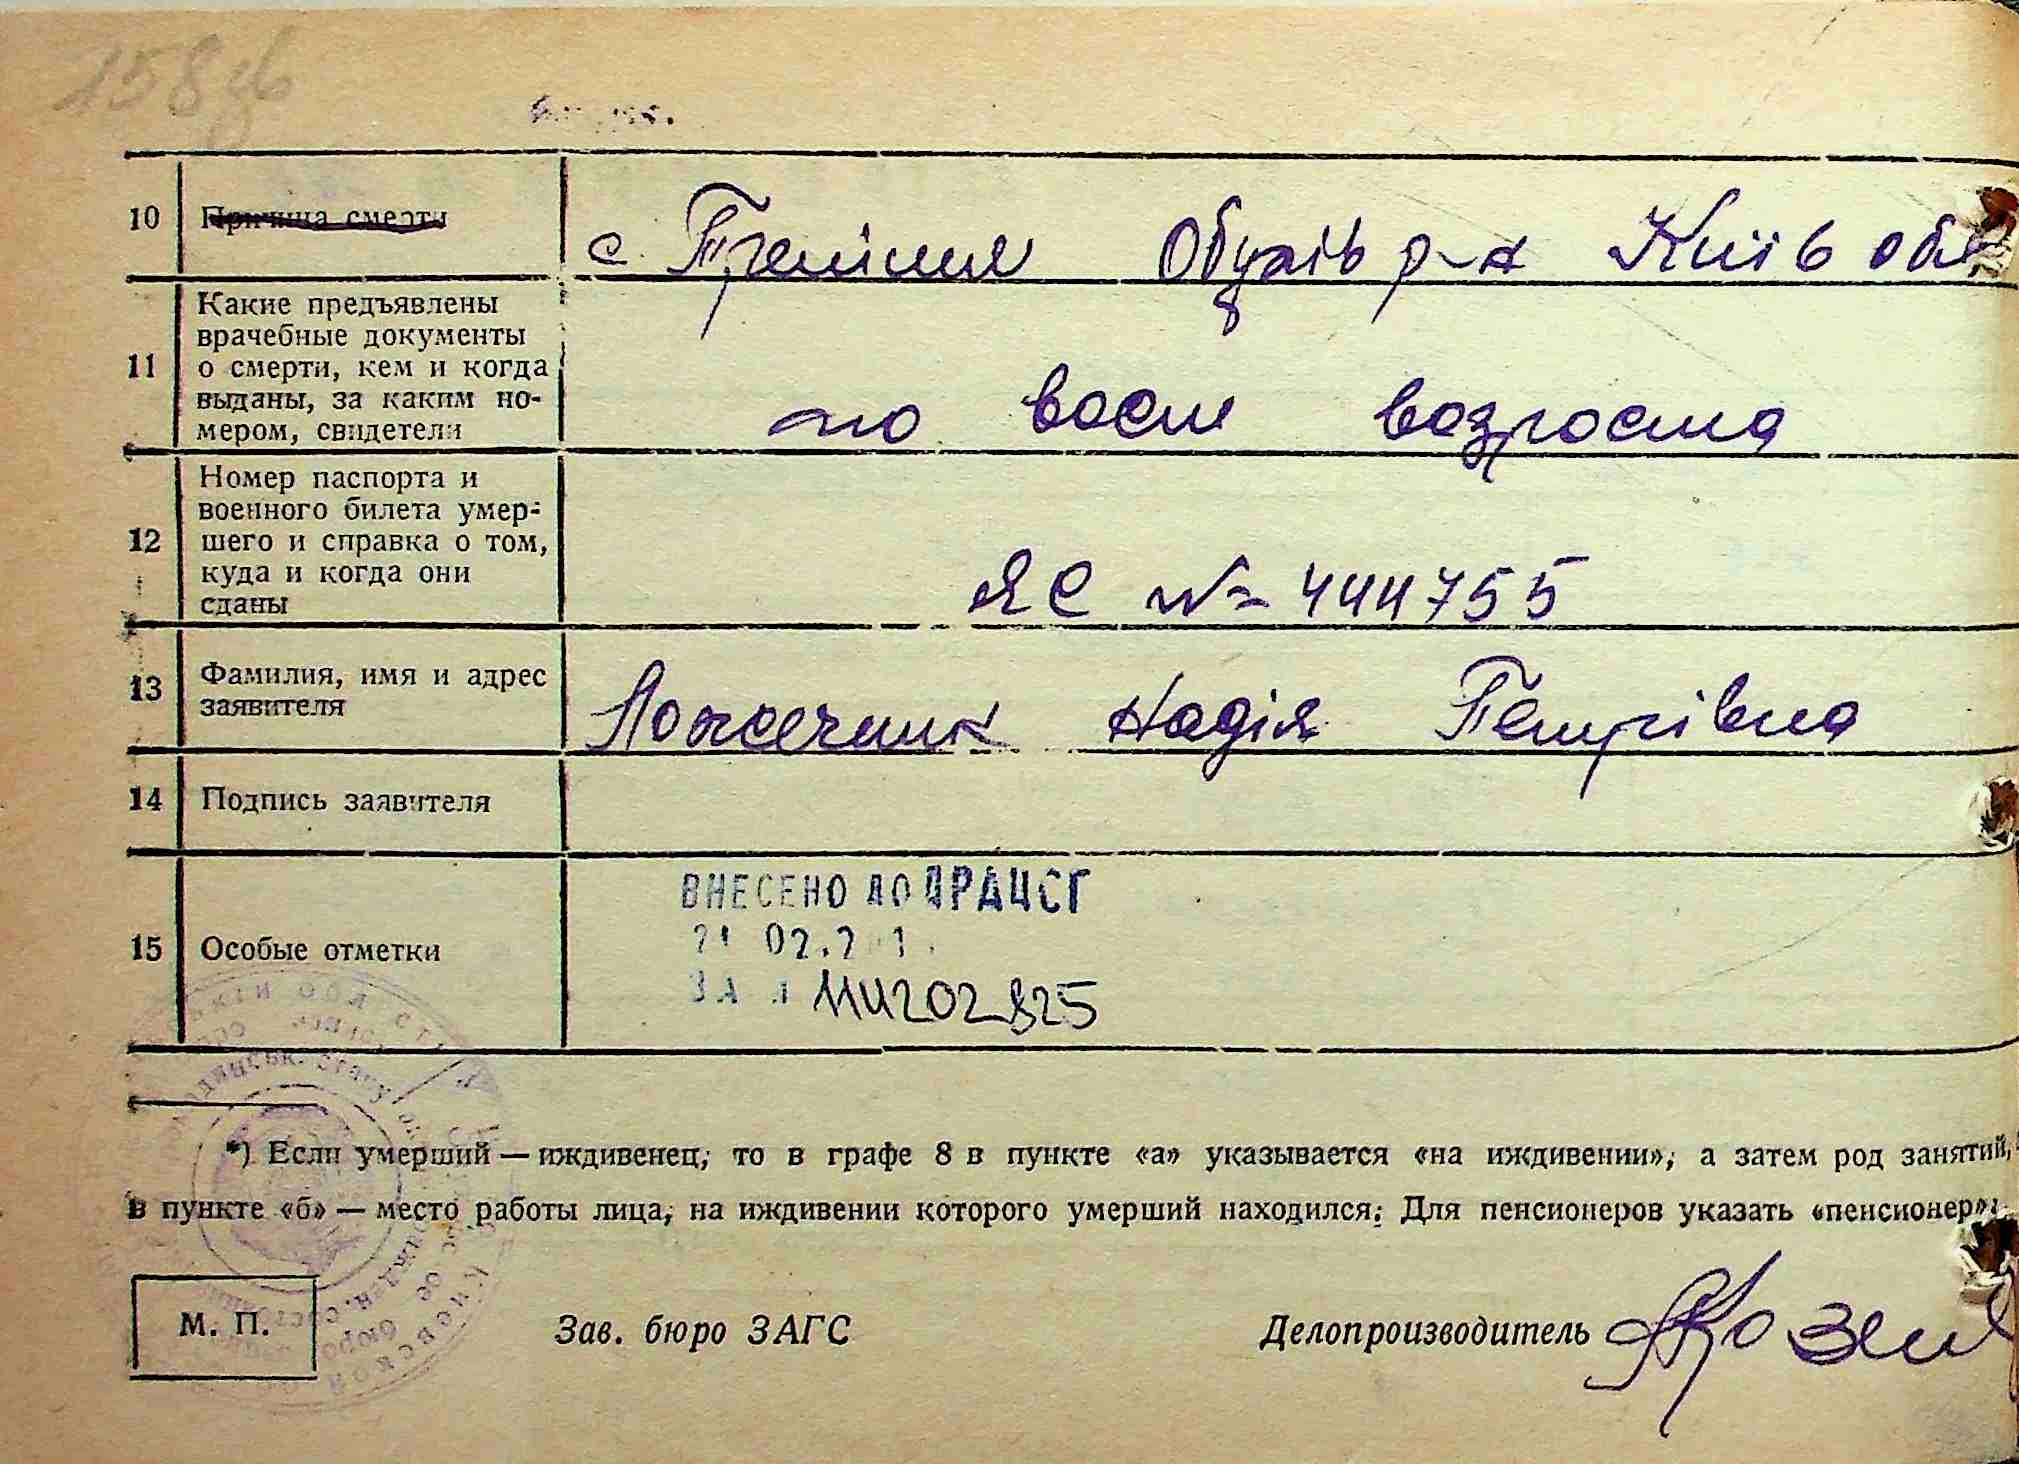 158
10 Причина смерти
с Трипілля Обухів р-н Київ обл
11 Какие предъявлены
врачебные документы
о смерти, кем и когда
выданы, за каким но-
мером, свидетели
по возрозта
12 Номер паспорта и
военного билета умер-
шего и справка о том,
куда и когда они
сданы
ЯС № 444755
13 Фамилия, имя и адрес
заявителя
Надія Петрівна
14 Подпись заявителя
15 Особые отметки
ВНЕСЕНО ДО ДРАЦСГ
02.
ЗА
*) Если умерший — иждивенец, то в графе 8 в пункте «а» указывается «на иждивении», а затем род занятий,
в пункте «б» — место работы лица, на иждивении которого умерший находился. Для пенсионеров указать «пенсионер».
М. П. Зав. бюро ЗАГС Делопроизводитель